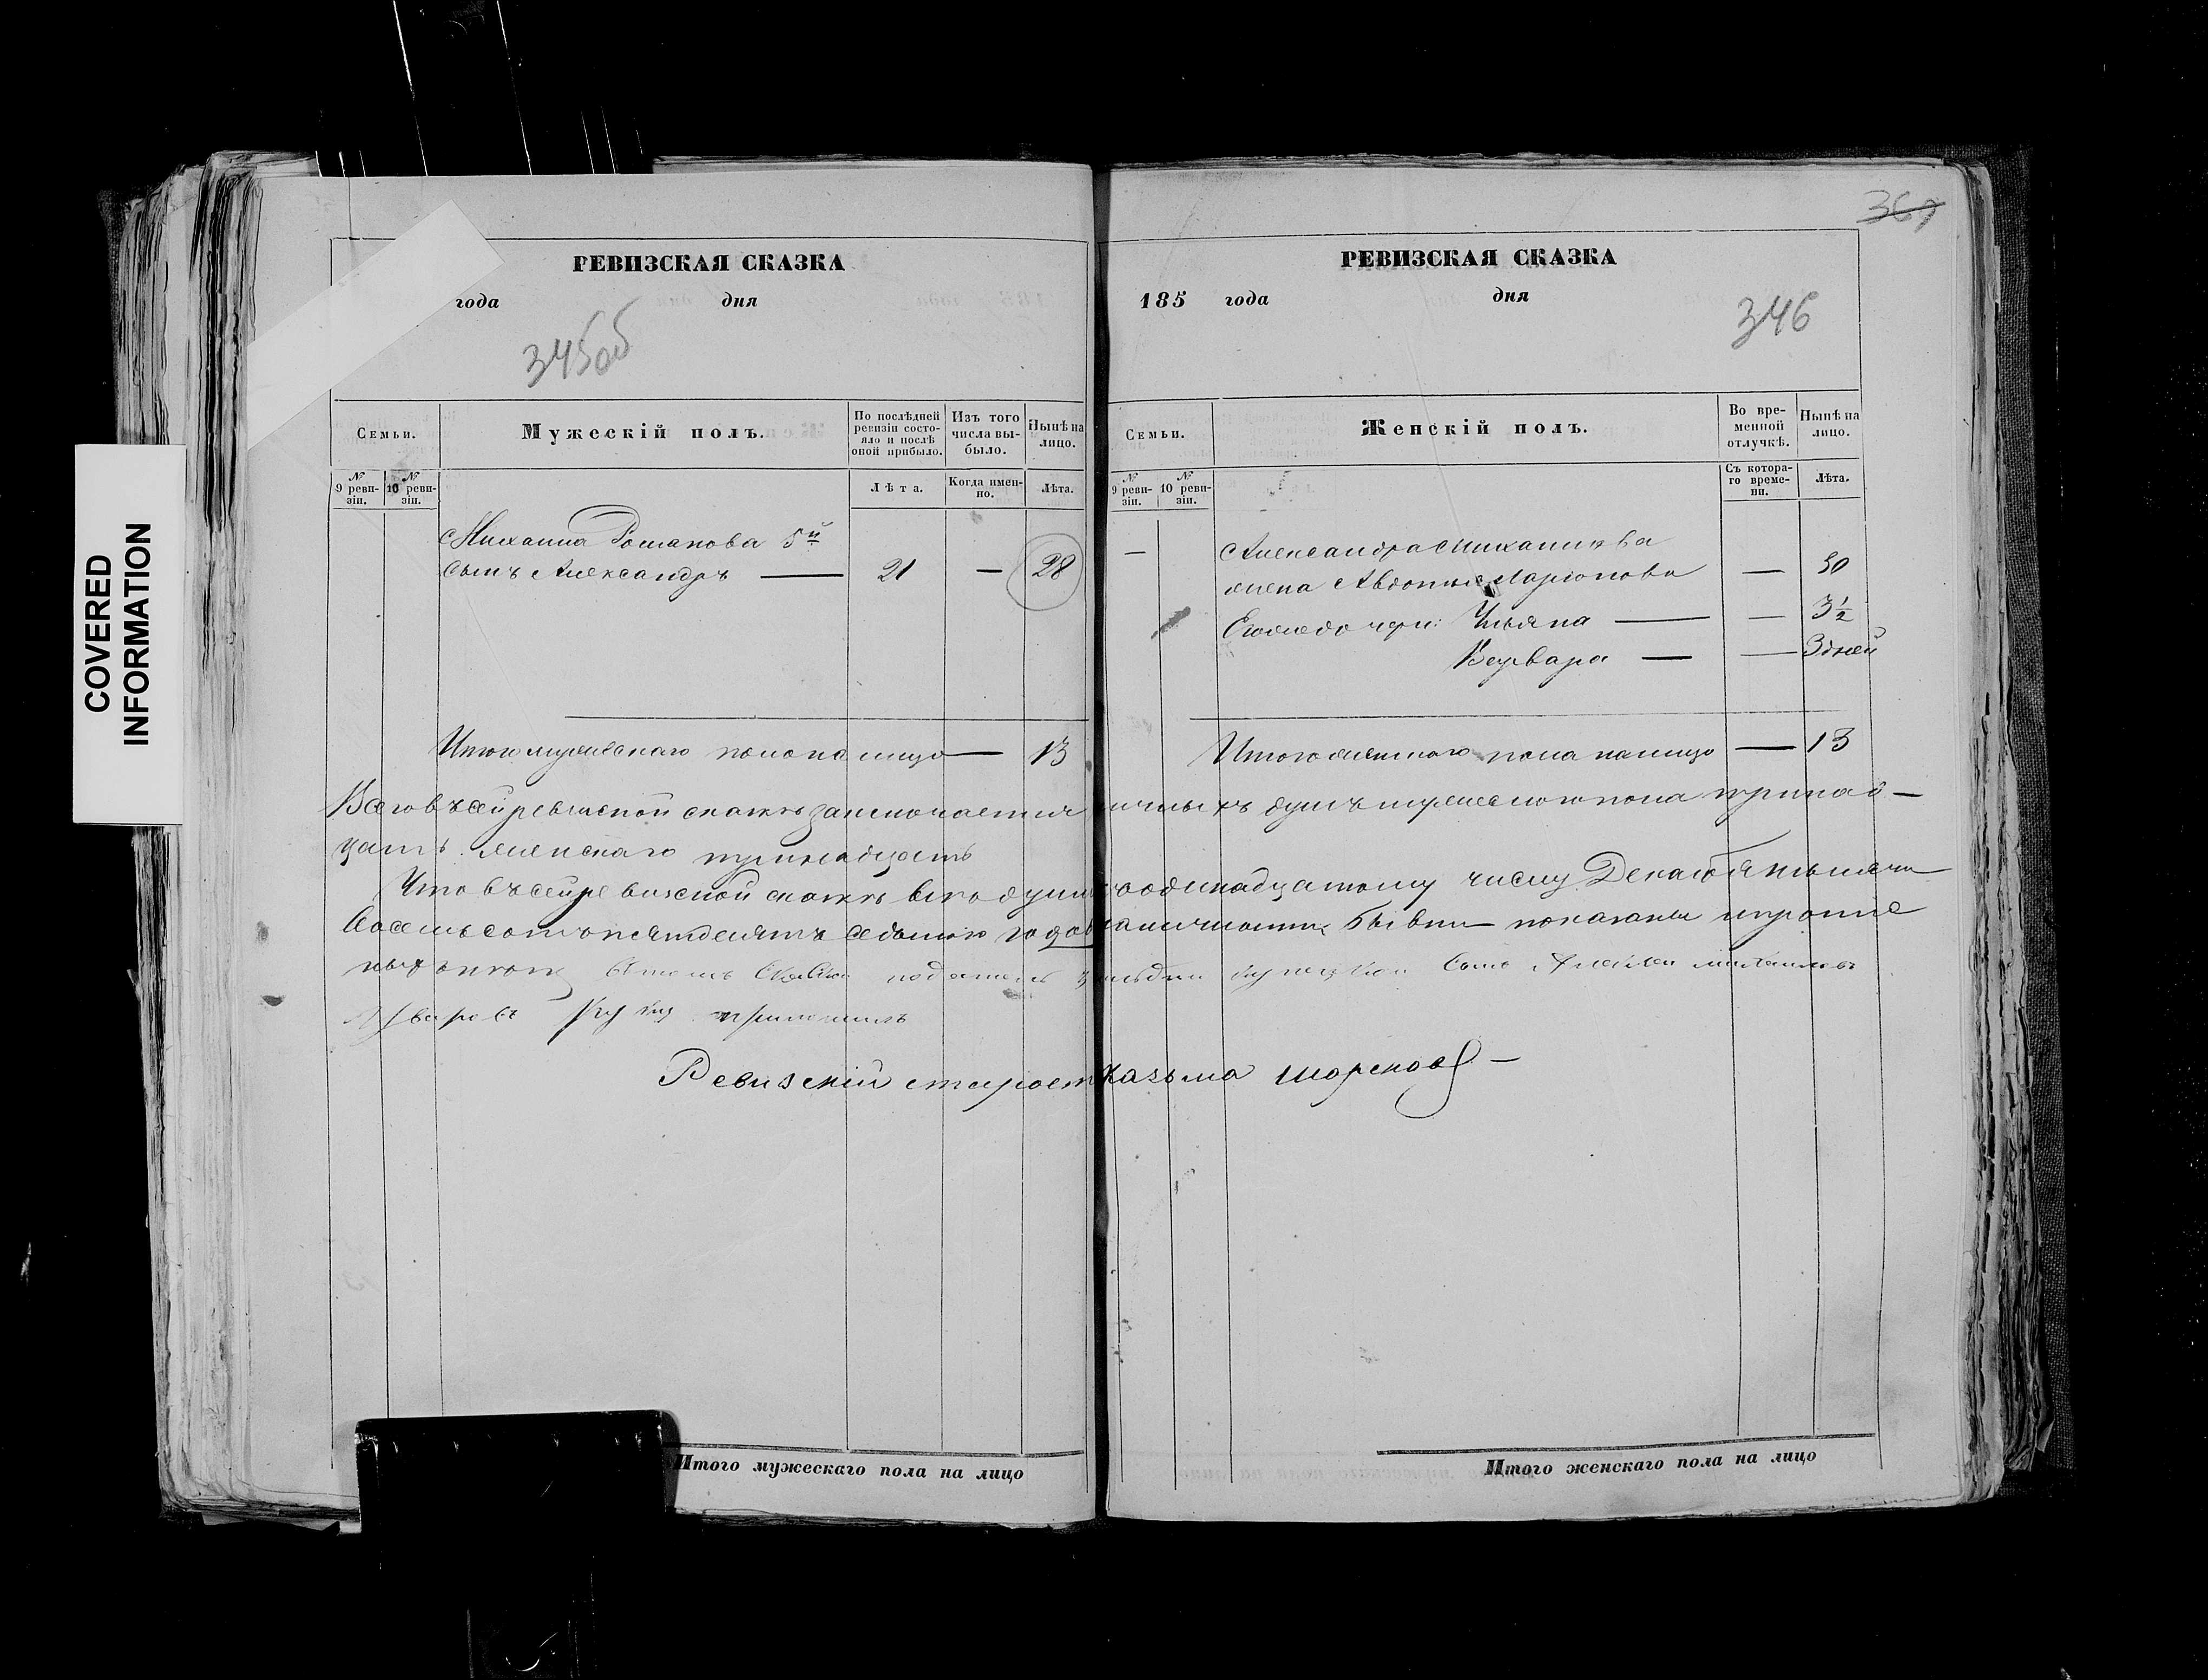 COVERED
INFORMATION
РЕВИЗСКАЯ СКАЗКА
года дня
345об
Семьи.
Мужескій полъ.
По послѣдней ревизіи состояло и послѣ оной прибыло.
Изъ того числа выбыло.
Нынѣ на лицо.
№ 9 ревизіи.
№ 10 ревизіи.
Лѣта.
Когда именно.
Лѣта.
Михаила Романова 5й
сынъ Александръ — 21 — 28
Итого мужескаго пола на лицо — 13
369
РЕВИЗСКАЯ СКАЗКА
185 года дня
346
Семьи.
Женскій полъ.
Во временной отлучкѣ.
Нынѣ на лицо.
№ 9 ревизіи.
№ 10 ревизіи.
Съ котораго времени.
Лѣта.
— Александра Михайлова
жена Авдотья Ларіонова — 30
Его же дочери: Ульяна — — 3½
Варвара — — 3 дней
Итого женскаго пола на лицо — 13
Всего въ сей ревизской сказкѣ заключается личныхъ душъ мужескаго пола тринад-
цать женскаго тринадцать
Что въ сей ревизской сказкѣ всѣ души по одинадцатому числу Декабря тысяча
восемьсотъ пятьдесятъ седьмаго года въ наличности бывши показаны и
сынъ Михайловъ
руку приложилъ
Ревизскій старост Казьма
Итого мужескаго пола на лицо
Итого женскаго пола на лицо